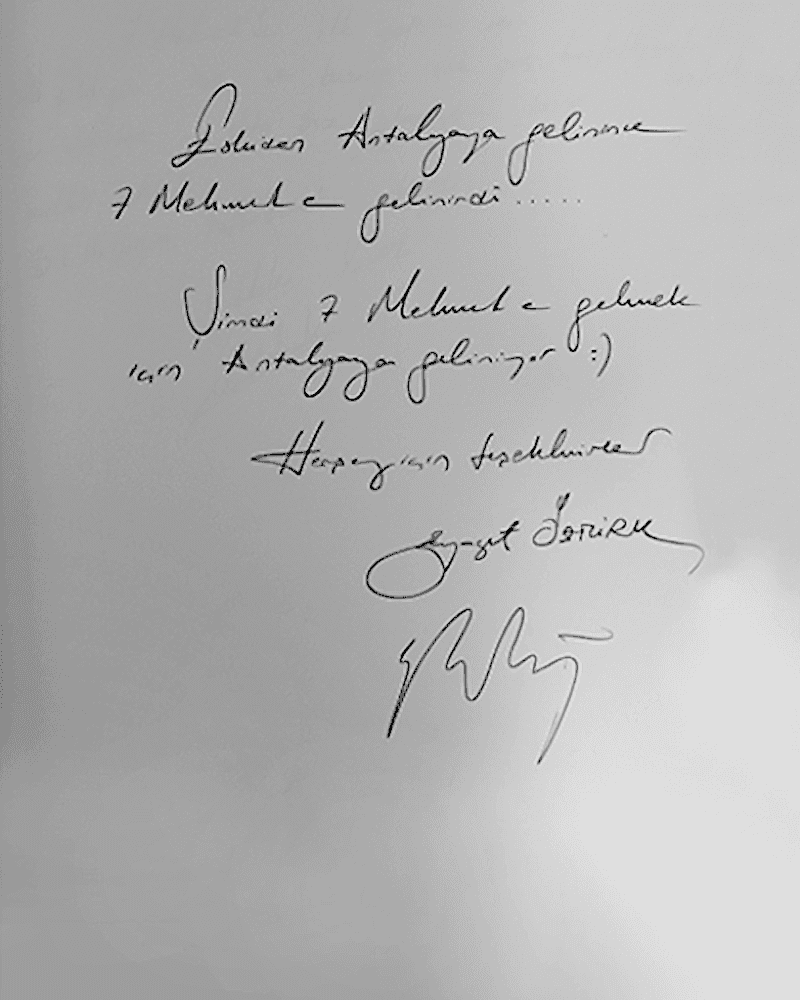 Eskiden Antalyaya gelinince
7 Mehmet e gelinirdi .....
Şimdi 7 Mehmet e gelmek
için Antalyaya geliniyor :)
Herşey için teşekkürler
Öztürk